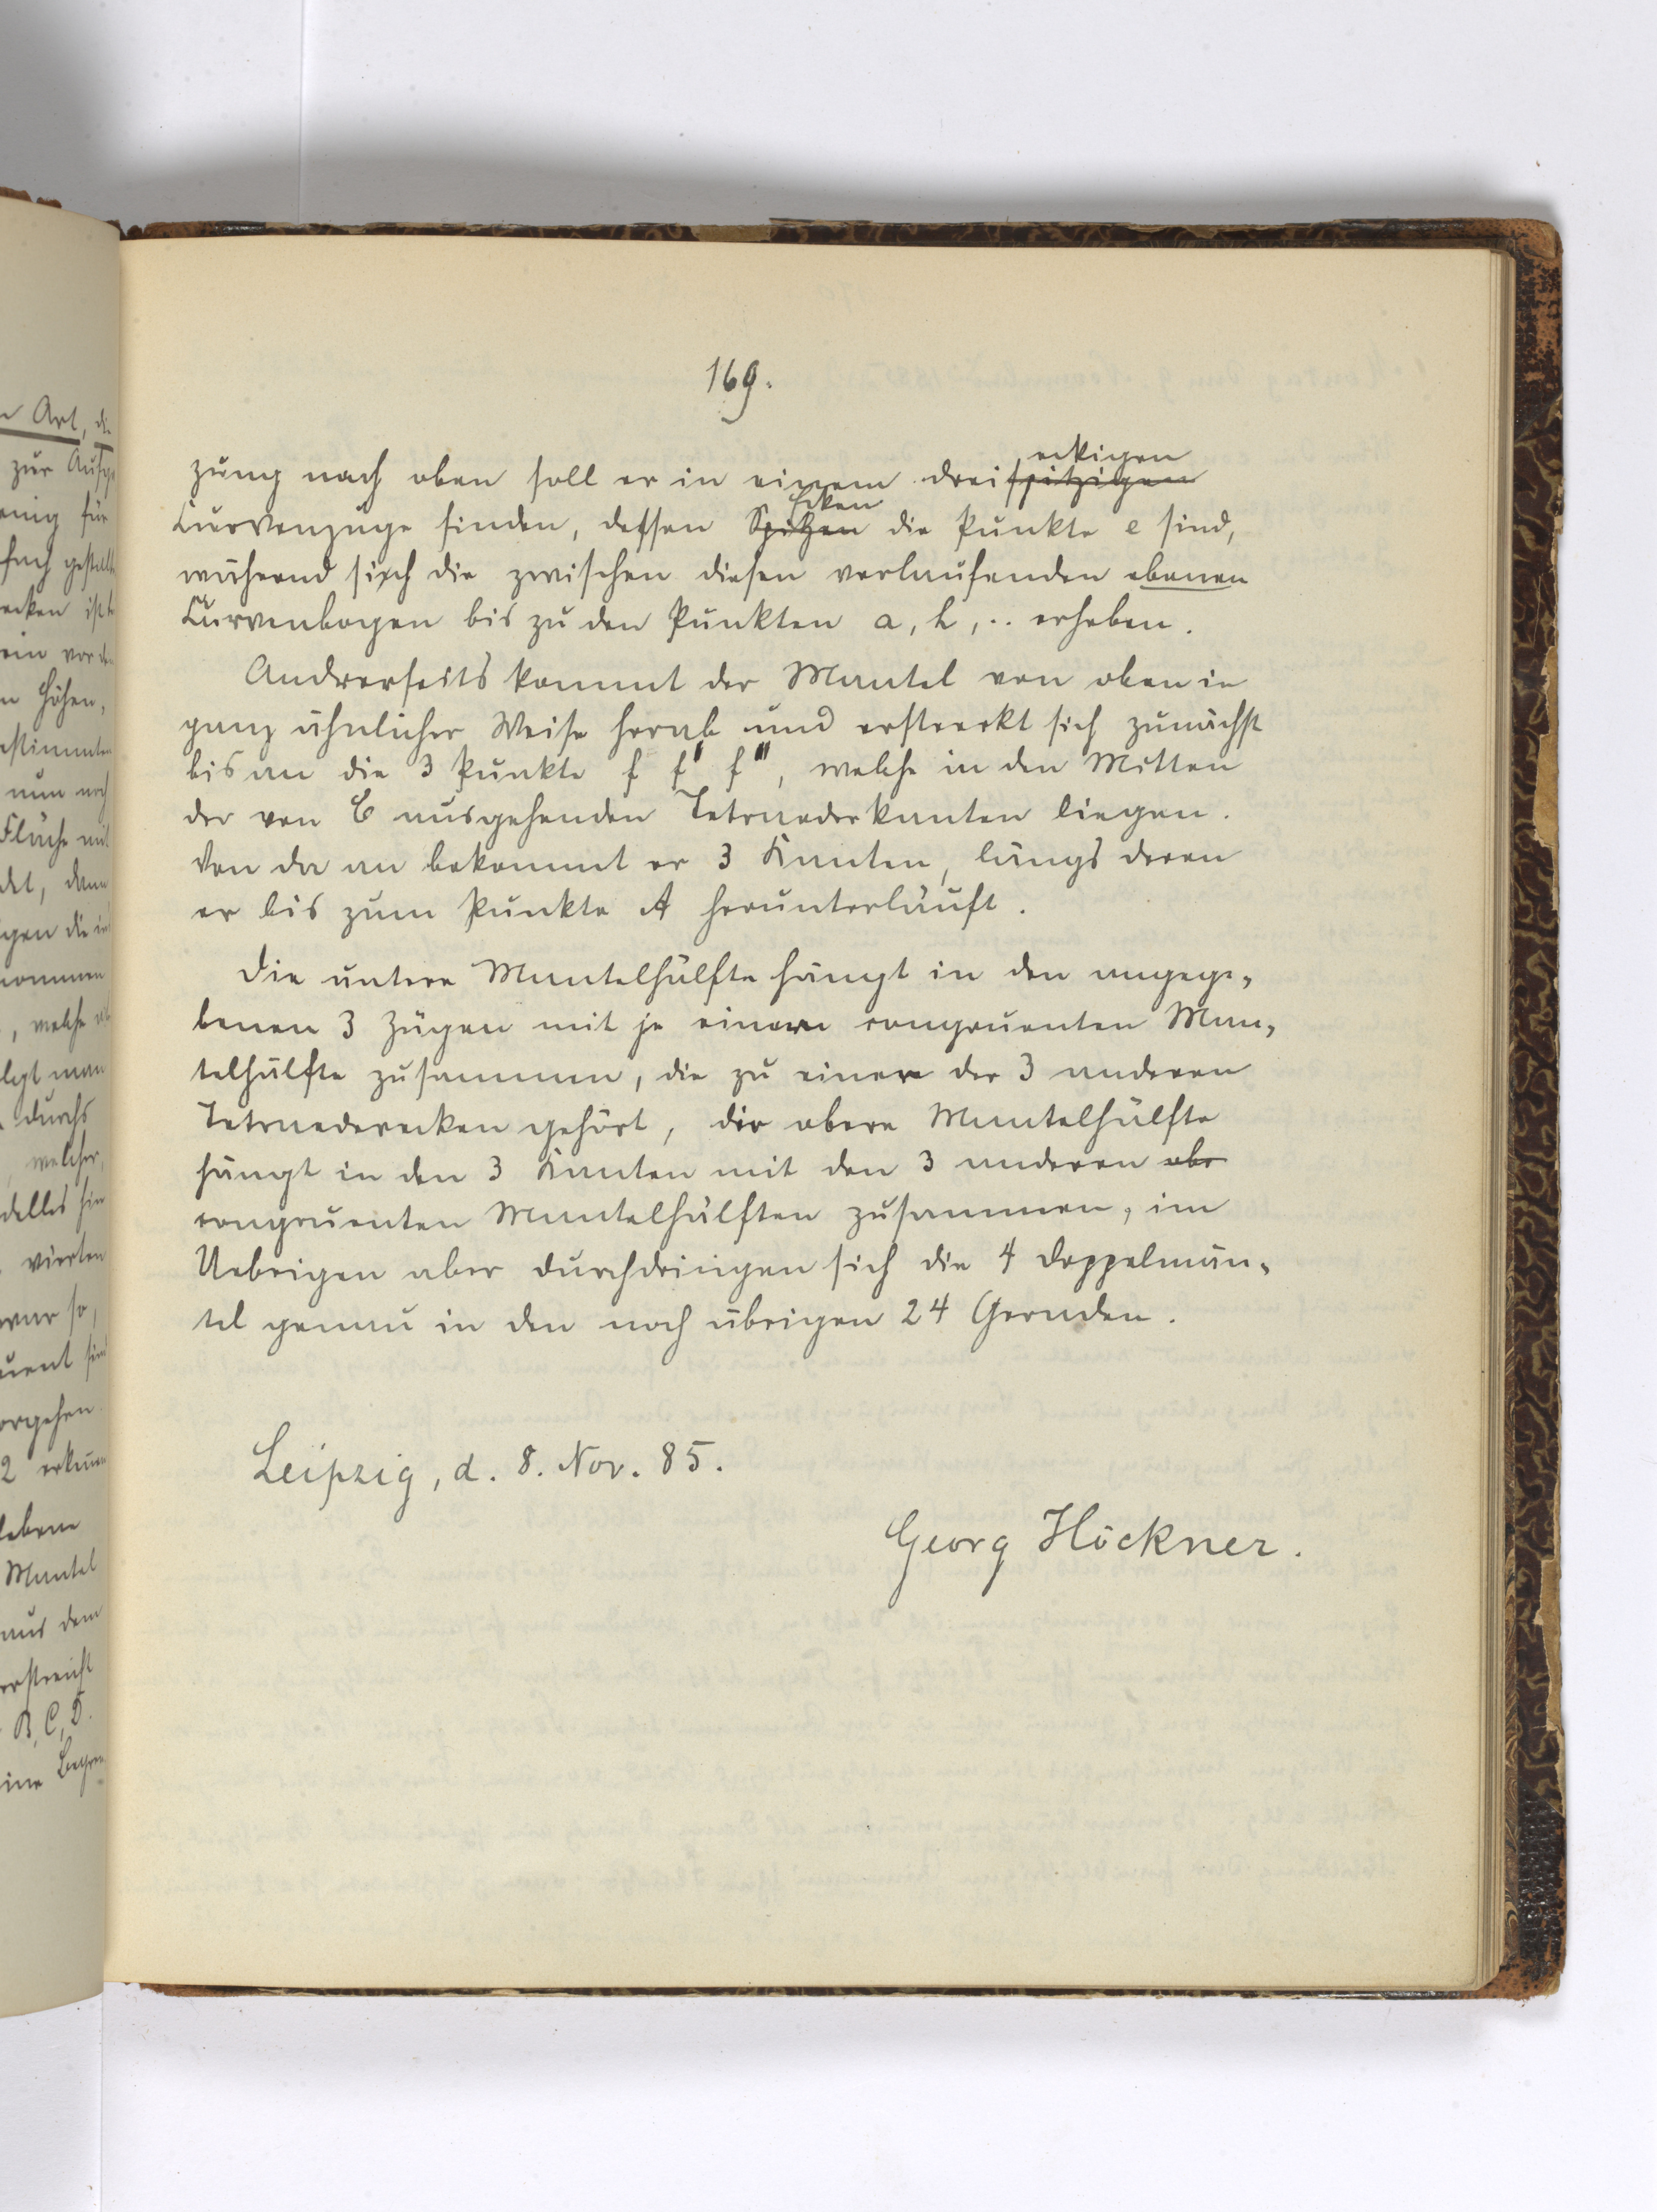 169.
zung nach oben soll er in einem dreispitzigen eckigen
Curvenzuge finden, dessen Spitzen Ecken die Punkte e sind,
während sich die zwischen diesen verlaufenden ebenen
Curvenbogen bis zu den Punkten a, h, .. erheben.
Andrerseits kommt der Mantel von oben in
ganz ähnlicher Weise herab und erstreckt sich zunächst
bis an die 3 Punkte f f' f'', welche in den Mitten
der von C ausgehenden Tetraederkanten liegen.
Von da an bekommt er 3 Kanten, längs deren
er bis zum Punkte A herunterläuft.
Die untere Mantelhälfte hängt in den angege-
benen 3 Zügen mit je einer congruenten Man-
telhälfte zusammen, die zu einer der 3 anderen
Tetraederecken gehört, die obere Mantelhälfte
hängt in den 3 Kanten mit den 3 anderen obe
congruenten Mantelhälften zusammen, im
Uebrigen aber durchdringen sich die 4 Doppelmän-
tel genau in den noch übrigen 24 Geraden.
Leipzig, d. 8. Nov. 85.
Georg Höckner.
Art, die
zur
für
Höhen,
nun noch
Fläche mit
welche
legt man
durchs
welcher,
vierten
so,
2
Mantel
aus dem
B, C, D.